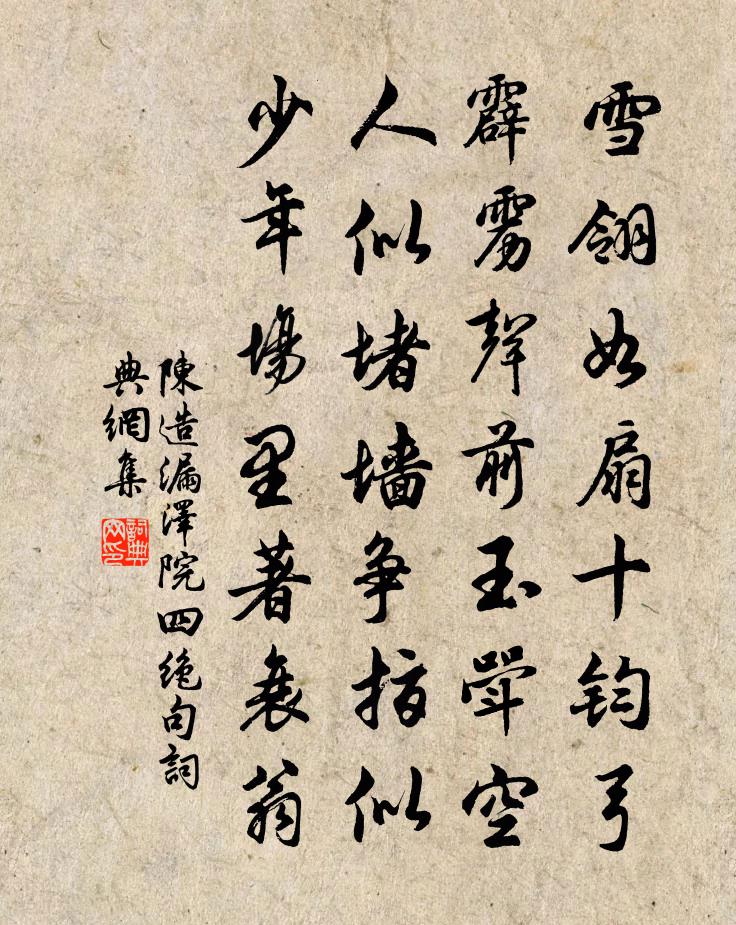 雪翎如扇十钧弓
霹雳聲前玉斝空
人似堵墙争指似
少年場里著衰翁
陳造漏澤院四绝句詞
典網集
詞典
网印